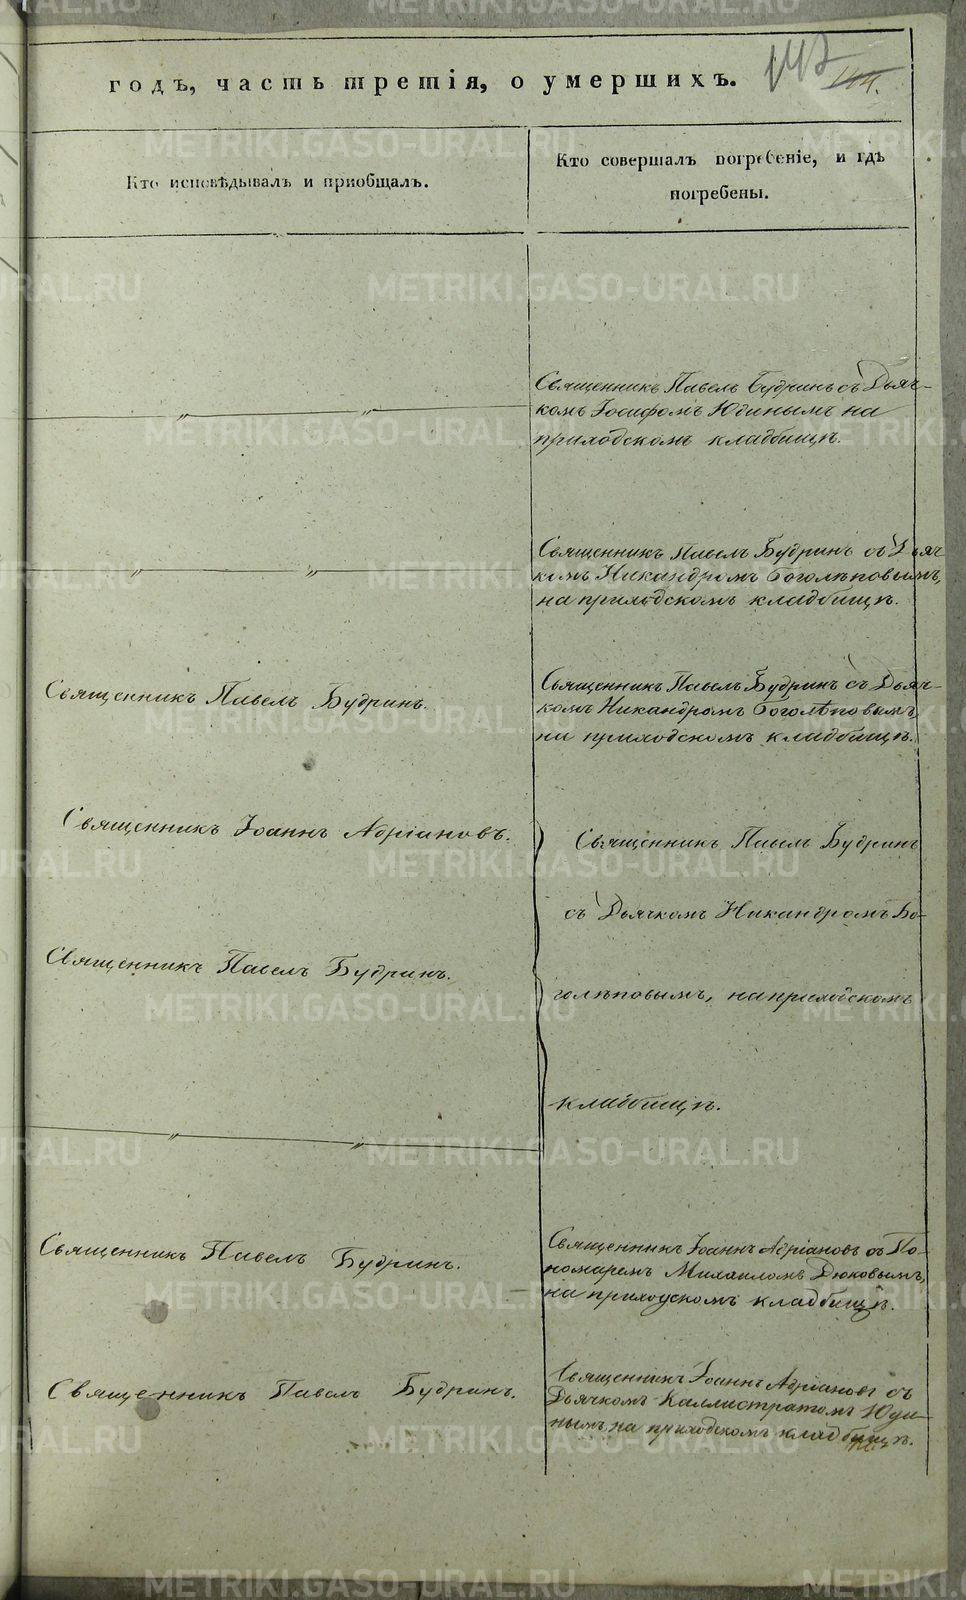 годъ, часть третія, о умершихъ.
142
144.
Кто исповѣдывалъ и приобщалъ.
Кто совершалъ погребеніе, и гдѣ
погребены.
Священникъ Павелъ Будринъ съ Дьяч-
комъ Іосифомъ Юдинымъ на
приходскомъ кладбищѣ.
Священникъ Павелъ Будринъ съ Дьяч
комъ Никандромъ Боголѣповымъ,
на приходскомъ кладбищѣ.
Священникъ Павелъ Будринъ.
Священникъ Павелъ Будринъ съ Дьяч-
комъ Никандромъ Боголѣповымъ,
на приходскомъ кладбищѣ.
Священникъ Іоаннъ Адріановъ.
Священникъ Павелъ Будринъ
съ Дьячкомъ Никандромъ Бо-
Священникъ Павелъ Будринъ.
голѣповымъ, на приходскомъ
кладбищѣ.
Священникъ Павелъ Будринъ.
Священникъ Іоаннъ Адріановъ съ По-
номаремъ Михаиломъ Дюковымъ,
на приходскомъ кладбищѣ.
Священникъ Павелъ Будринъ.
Священникъ Іоаннъ Адріановъ съ
Дьячкомъ Каллистратомъ Юди-
нымъ, на приходскомъ кладбищѣ.
METRIKI.GASO-URAL.RU